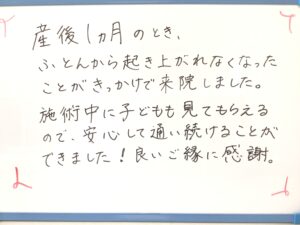 産後1ヵ月のとき、
ふとんから起き上がれなくなった
ことがきっかけで来院しました。
施術中に子どもも見てもらえる
ので、安心して通い続けることが
できました！良いご縁に感謝。